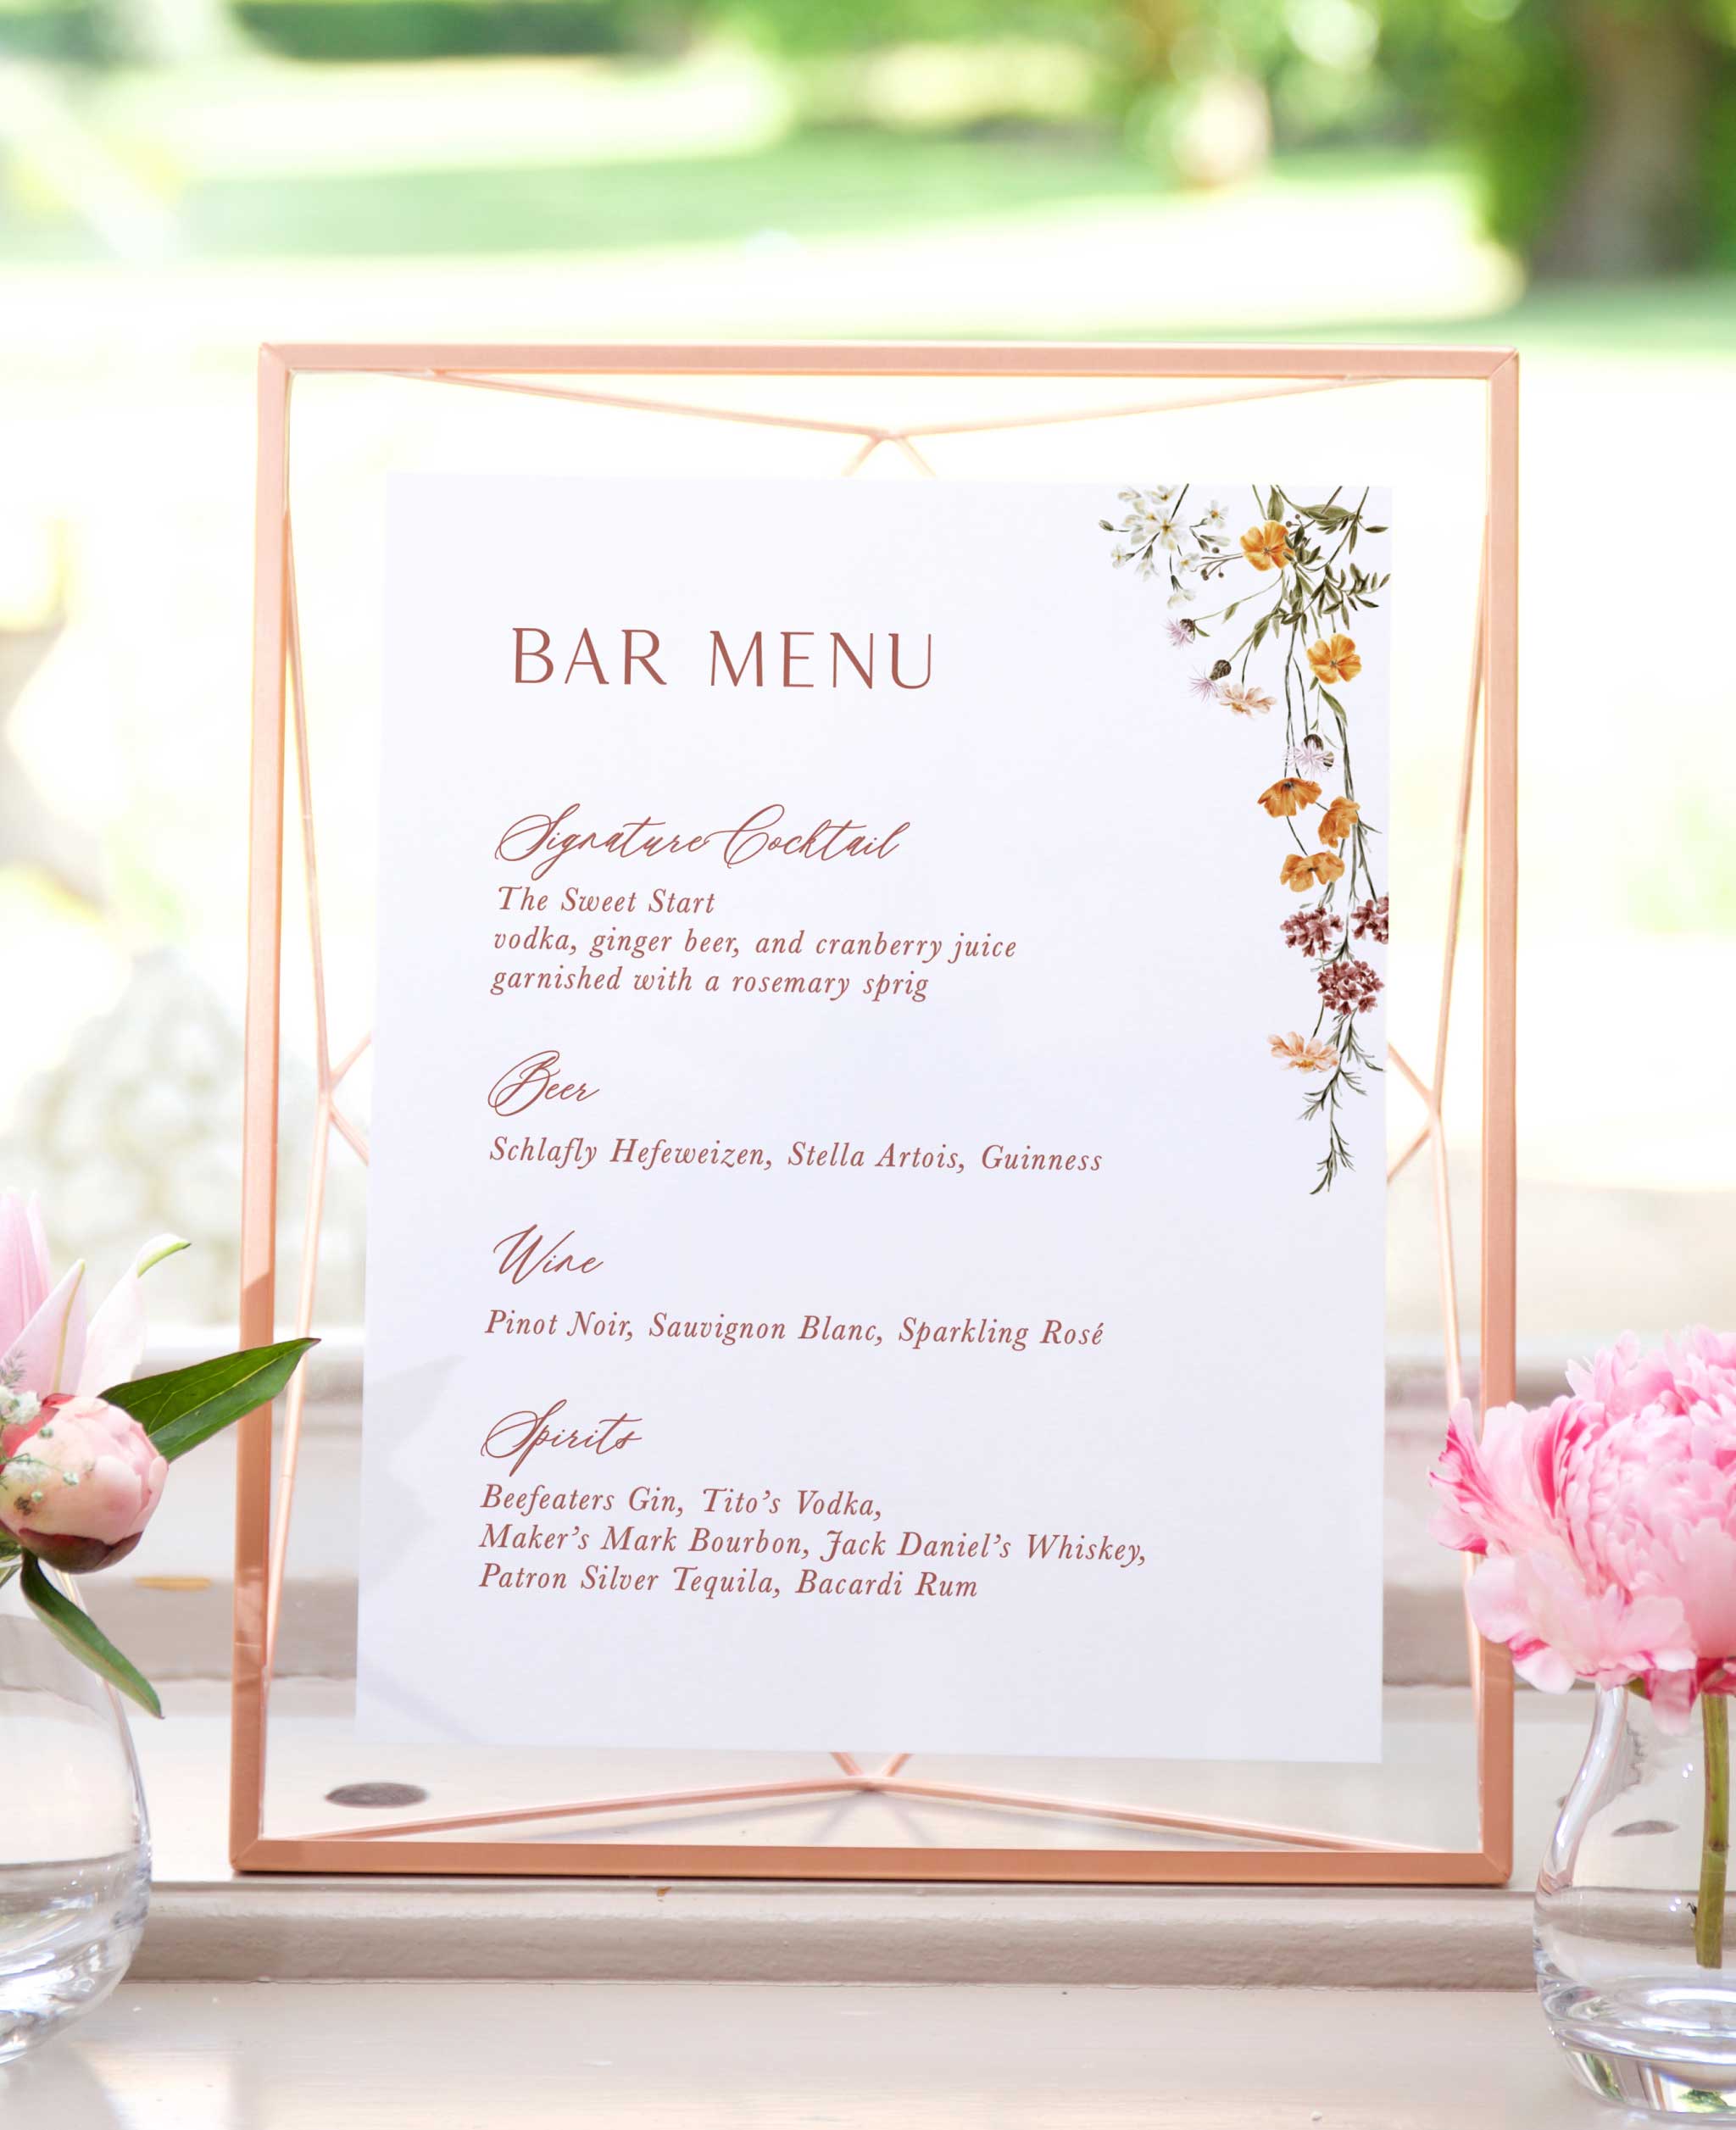 BAR MENU
Signature Cocktail
The Sweet Start
vodka, ginger beer, and cranberry juice
garnished with a rosemary sprig
Beer
Schlafly Hefeweizen, Stella Artois, Guinness
Wine
Pinot Noir, Sauvignon Blanc, Sparkling Rosé
Spirits
Beefeaters Gin, Tito’s Vodka,
Maker’s Mark Bourbon, Jack Daniel’s Whiskey,
Patron Silver Tequila, Bacardi Rum